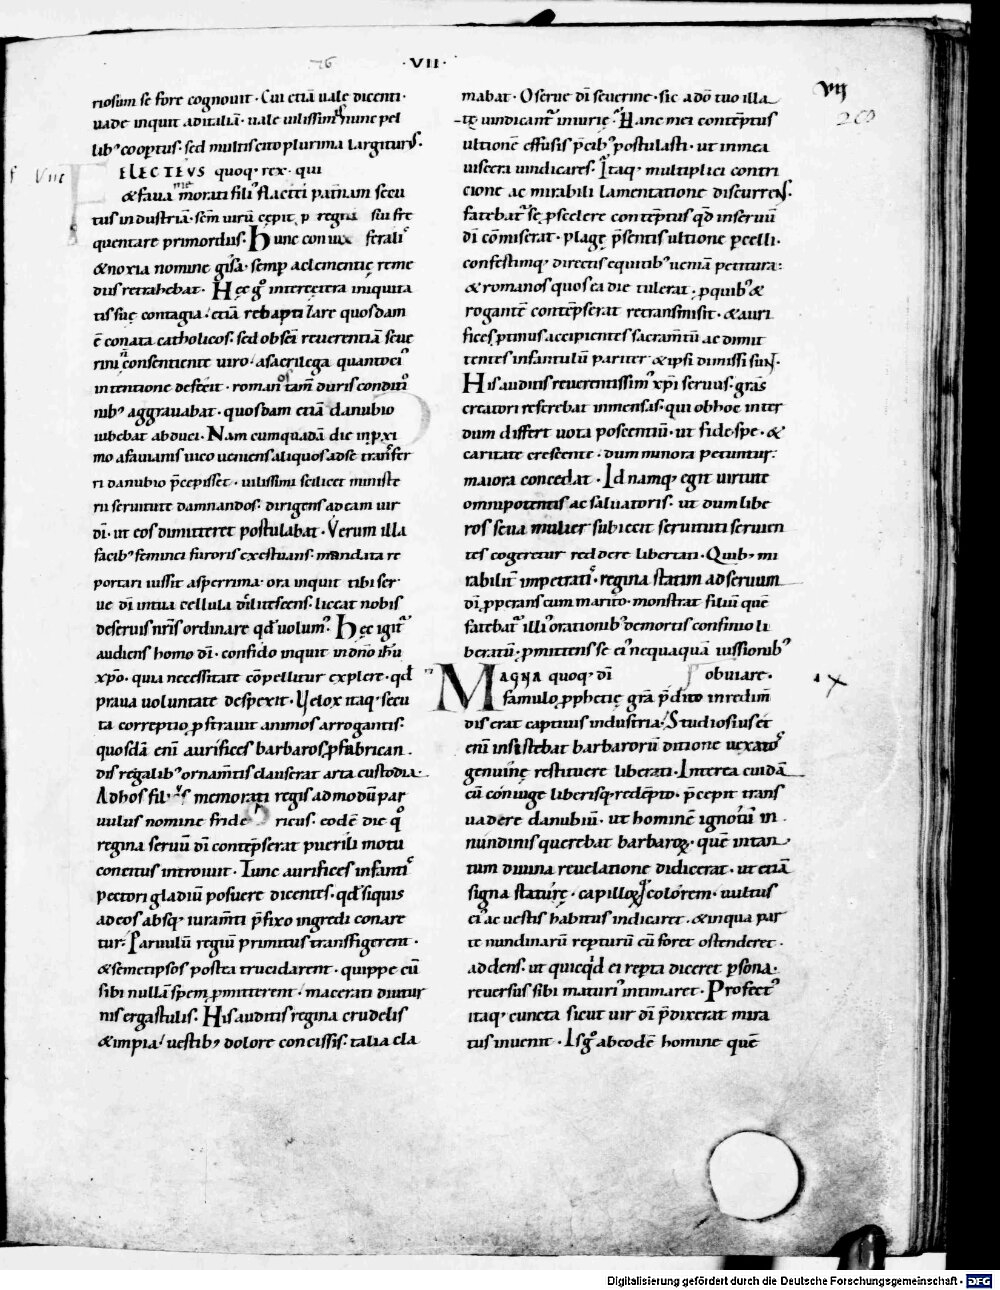 76
·VII·
VIJ
riosum se fore cognouit · Cui etiā uale dicenti ·
uade inquit ad italiā · uale uilissimis nunc pel
lib; coopertus : sed multis cito plurima largiturus ·
f VIII
ELECTEVS quoq; rex · qui
& faua memorati fili' flaccitei patriam secu
tus industriā · scm uirū cepit p regni sui fre
quentare primordiis · Hunc coniux ferali'
& noxia nomine gisa · semp a clementię reme
diis retrahebat · Hęc g° inter cetera iniquita
tis suę contagia / etiā rebaptizare quosdam
ē conata catholicos : sed ob sc̄i reuerentiā seue
rini n̄ consentiente uiro / a sacrilega quantoci'
intentione defecit · romanos tam̄ duris conditio
nib; aggrauabat · quosdam etiā danubio
iubebat abduci · Nam cum quadā die in pxi
mo a fauianis uico ueniens aliquos ad se transfer
ri danubio p̄cepisset · uilissimi scilicet ministe
rii seruitute damnandos : dirigens ad eam uir
dī · ut eos dimitteret postulabat · Verum illa
facib; feminei furoris exęstuans : mandata re
portari iussit asperrima · ora inquit tibi ser
ue dī in tua cellula delitescens : liceat nobis
de seruis nr̄is ordinare qd uolum' · Hęc igit'
audiens homo dī · confido inquit in dn̄o ih̄u
xp̄o · quia necessitate cōpellitur explere · qd
praua uoluntate despexit · Velox itaq; secu
ta correptio pstrauit animos arrogantis :
quosdā enī aurifices barbaros p fabrican
dis regalib; ornam̄tis clauserat arta custodia ·
Ad hos fili's memorati regis admodū par
uulus nomine fride ricus · eodē die q°
regina seruū dī contēpserat puerili motu
concitus introiuit · Tunc aurifices infanti'
pectori gladiū posuere dicentes · qd siquis
ad eos absq; iuram̄ti p̄fixo ingredi conare
tur : Paruulū regiū primitus transfigerent ·
& semetipsos postea trucidarent · quippe cū
sibi nullā spem pmitterent · macerati diutur
nis ergastulis : His auditis regina crudelis
& impia / uestib; dolore concissis : talia cla
mabat · O serue dī seuerine · sic a dō tuo illa
tę uindicant' iniurię · Hanc mei contēptus
ultionē effusis p̄cib; postulasti · ut in mea
uiscera uindicares : Itaq; multiplici contri
cione ac mirabili lamentatione discurrens :
fatebat' se p scelere contēptus qd in seruū
dī cōmiserat · plagę p̄sentis ultione pcelli ·
confestimq; directis equitib; ueniā petitura :
& romanos quos ea die tulerat · p quib; &
rogantē contēpserat retransmisit · & auri
fices ptinus accipientes sacram̄tū ac dimit
tentes infantulū pariter & ipsi dimissi sunt ·
His auditis reuerentissim' xp̄i seruus · gr̄as
creatori referebat inmensas · qui ob hoc inter
dum differt uota poscentiū · ut fide · spe · &
caritate crescente · dum minora petuntur :
maiora concedat · Id namq; egit uirtute
omnipotentis ac saluatoris · ut dum libe
ros seua mulier subiecit seruituti seruien
tes cogeretur reddere libertati · Quib; mi
rabilit' impetratis · regina statim ad seruum
dī pperans cum marito · monstrat filiū quē
fatebat' illi' orationib; de mortis confinio li
beratū · pmittens se ei' nequaquā iussionib;
obuiare ·
MAGNA quoq; dī
famulo pphetię gr̄a p̄dito in redim̄
dis erat captiuis industria · Studiosius et
enī insistebat barbarorū ditione uexatos
genuinę restituere liberati · Interea cuidā
cū coniuge liberisq; redēpto · p̄cepit trans
uadere danubiū · ut hominē ignotū in
nundinis quereret barbaroꝝ · quē in tan
tum diuina reuelatione didicerat · ut etiā
signa staturę · capilloꝝ colorem · uultus
ei' ac uestis habitus indicaret · & in qua par
te nundinarū repturū eū foret ostenderet ·
addens · ut quicqd ei repta diceret psona ·
reuersus sibi maturi' intimaret · Profect'
itaq; cuncta sicut uir dī p̄dixerat mira
tus inuenit · Is g° ab eodē homine quē
Digitalisierung gefördert durch die Deutsche Forschungsgemeinschaft - DFG